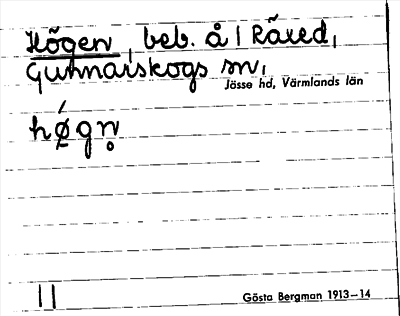 Högen, beb. å 1 Räxed,
Gunnarskogs sn,
Jösse hd, Värmlands län
hǿgn̥
11
Gösta Bergman 1913—14